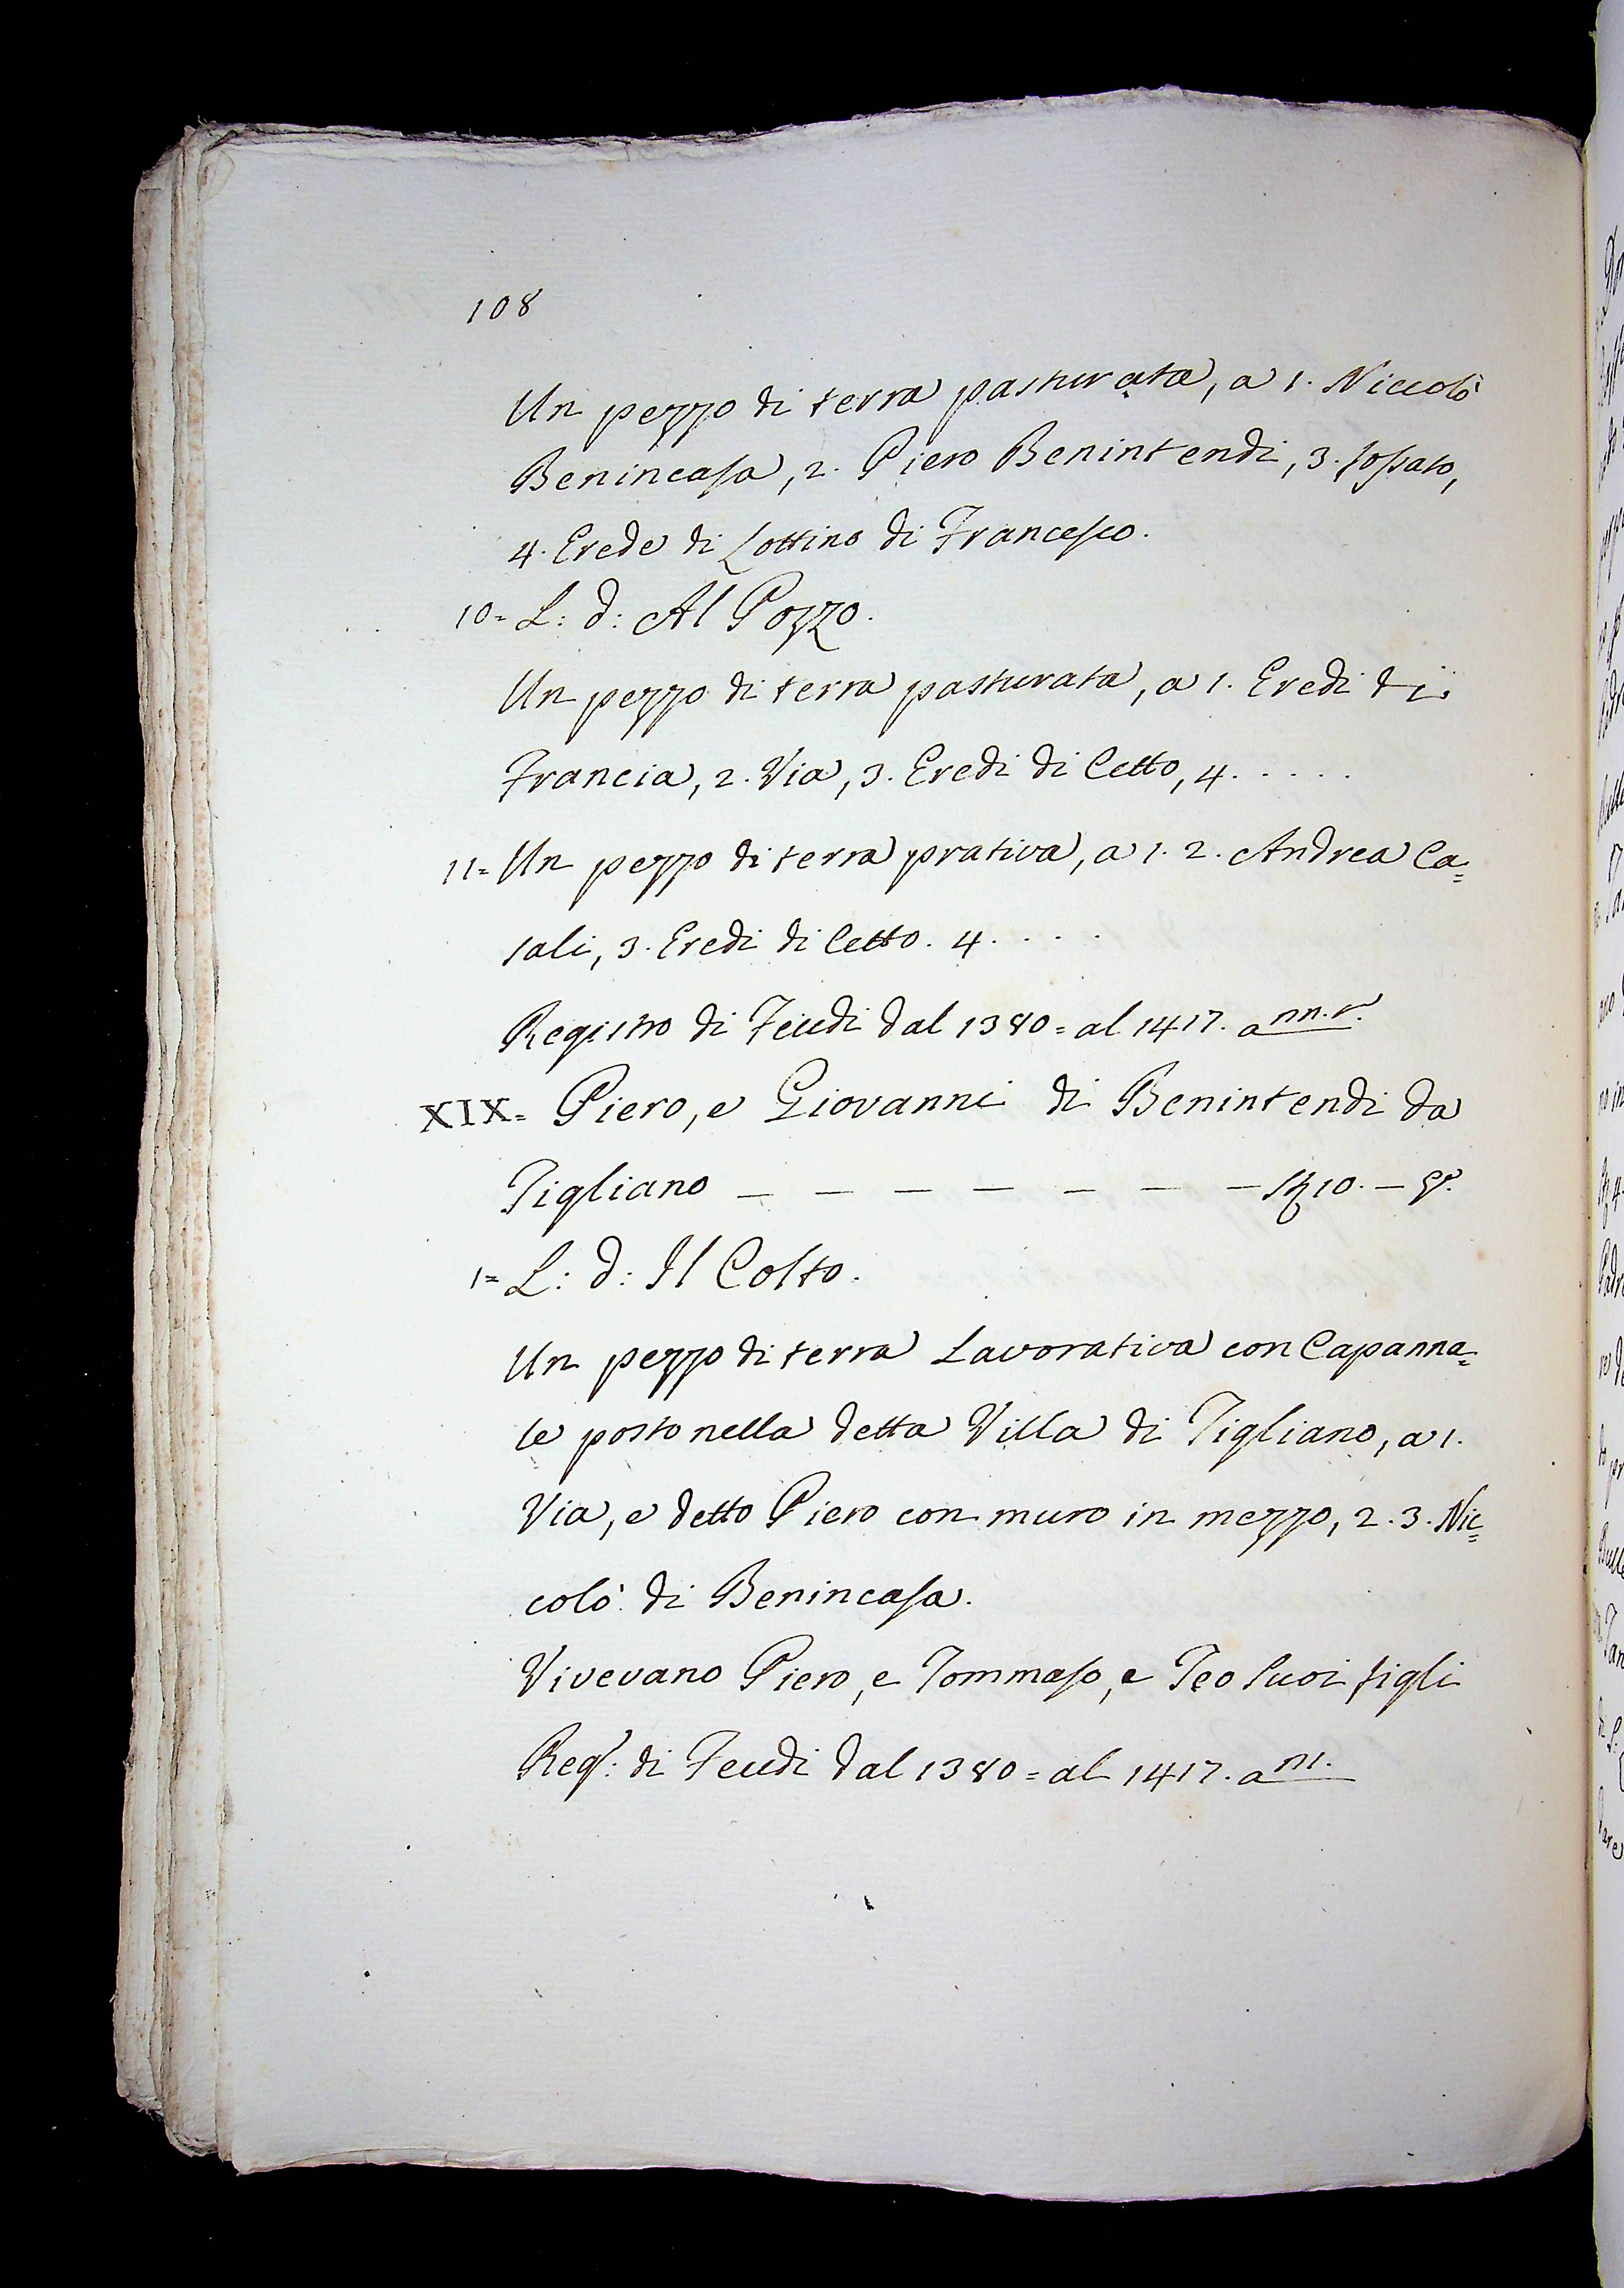 108
Un pezzo di terra pasturata, a 1. Niccolò
Benincasa, 2. Piero Benintendi, 3. fossato,
4. Erede di Lottino di Francesco.
10= L: d: Al Pozzo.
Un pezzo di terra pasturata, a 1. Eredi di
Francia, 2. Via, 3. Eredi di Cetto, 4. . . . .
11= Un pezzo di terra prativa, a 1. 2. Andrea Ca=
sali, 3. Eredi di Cetto. 4. . . .
Registro di Feudi dal 1380= al 1417. a
XIX= Piero, e Giovanni di Benintendi da
Tigliano — — — — — — — 10. —
1= L: d: Il Colto.
Un pezzo di terra Lavorativa con Capanna=
le posto nella detta Villa di Tigliano, a 1.
Via, e detto Piero con muro in mezzo, 2. 3. Nic=
colò di Benincasa.
Vivevano Piero, e Tommaso, e Teo suoi figli
Reg: di Feudi dal 1380= al 1417. a